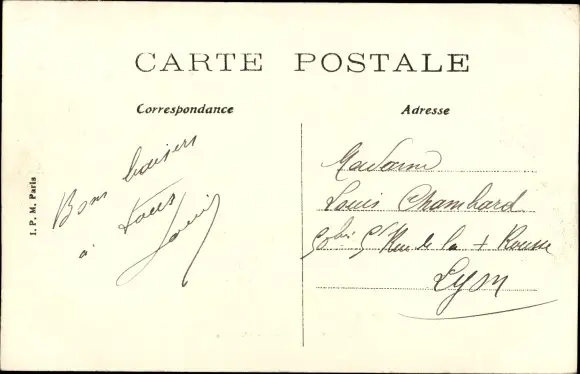 CARTE POSTALE
Correspondance
Adresse
I. P. M. Paris
Bons baisers
à tous
Louis
Madame
Louis Chambard
bis Rue de la + Rousse
Lyon